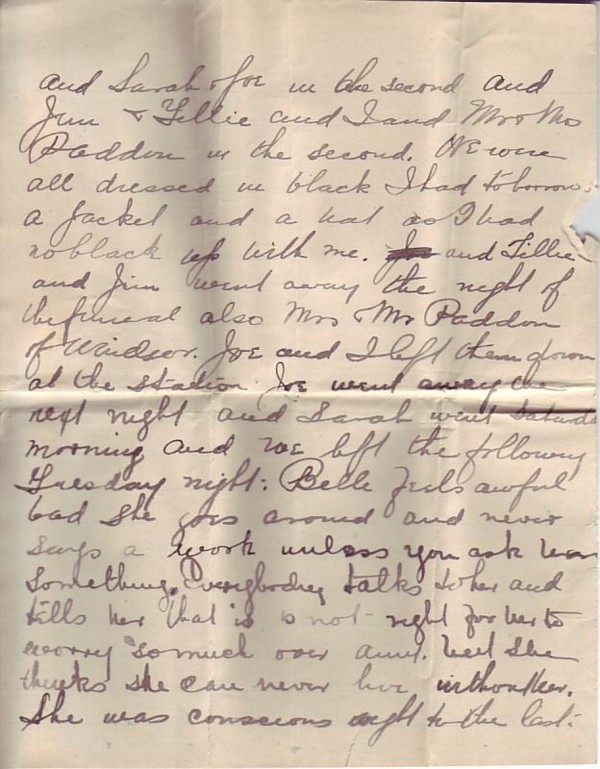 and Sarah & Joe in the second and
Jim & Tillie and I and Mr & Mrs
Paddon in the second. We were
all dressed in black I had to borrow
a jacket and a hat as I had
no black up with me. and Tillie
and Jim went away the night of
the funeral also Mrs & Mr Paddon
of Windsor. Joe and I left them down
at the station Joe went away the
next night and Sarah went Saturda
morning and we left the following
Tuesday night: Belle feels awful
bad she goes around and never
says a work unless you ask her
something. Everybodey talks to her and
tells her that is is not right for her to
worry so much over but she
thinks she can never live without her.
She was conscious right to the last: